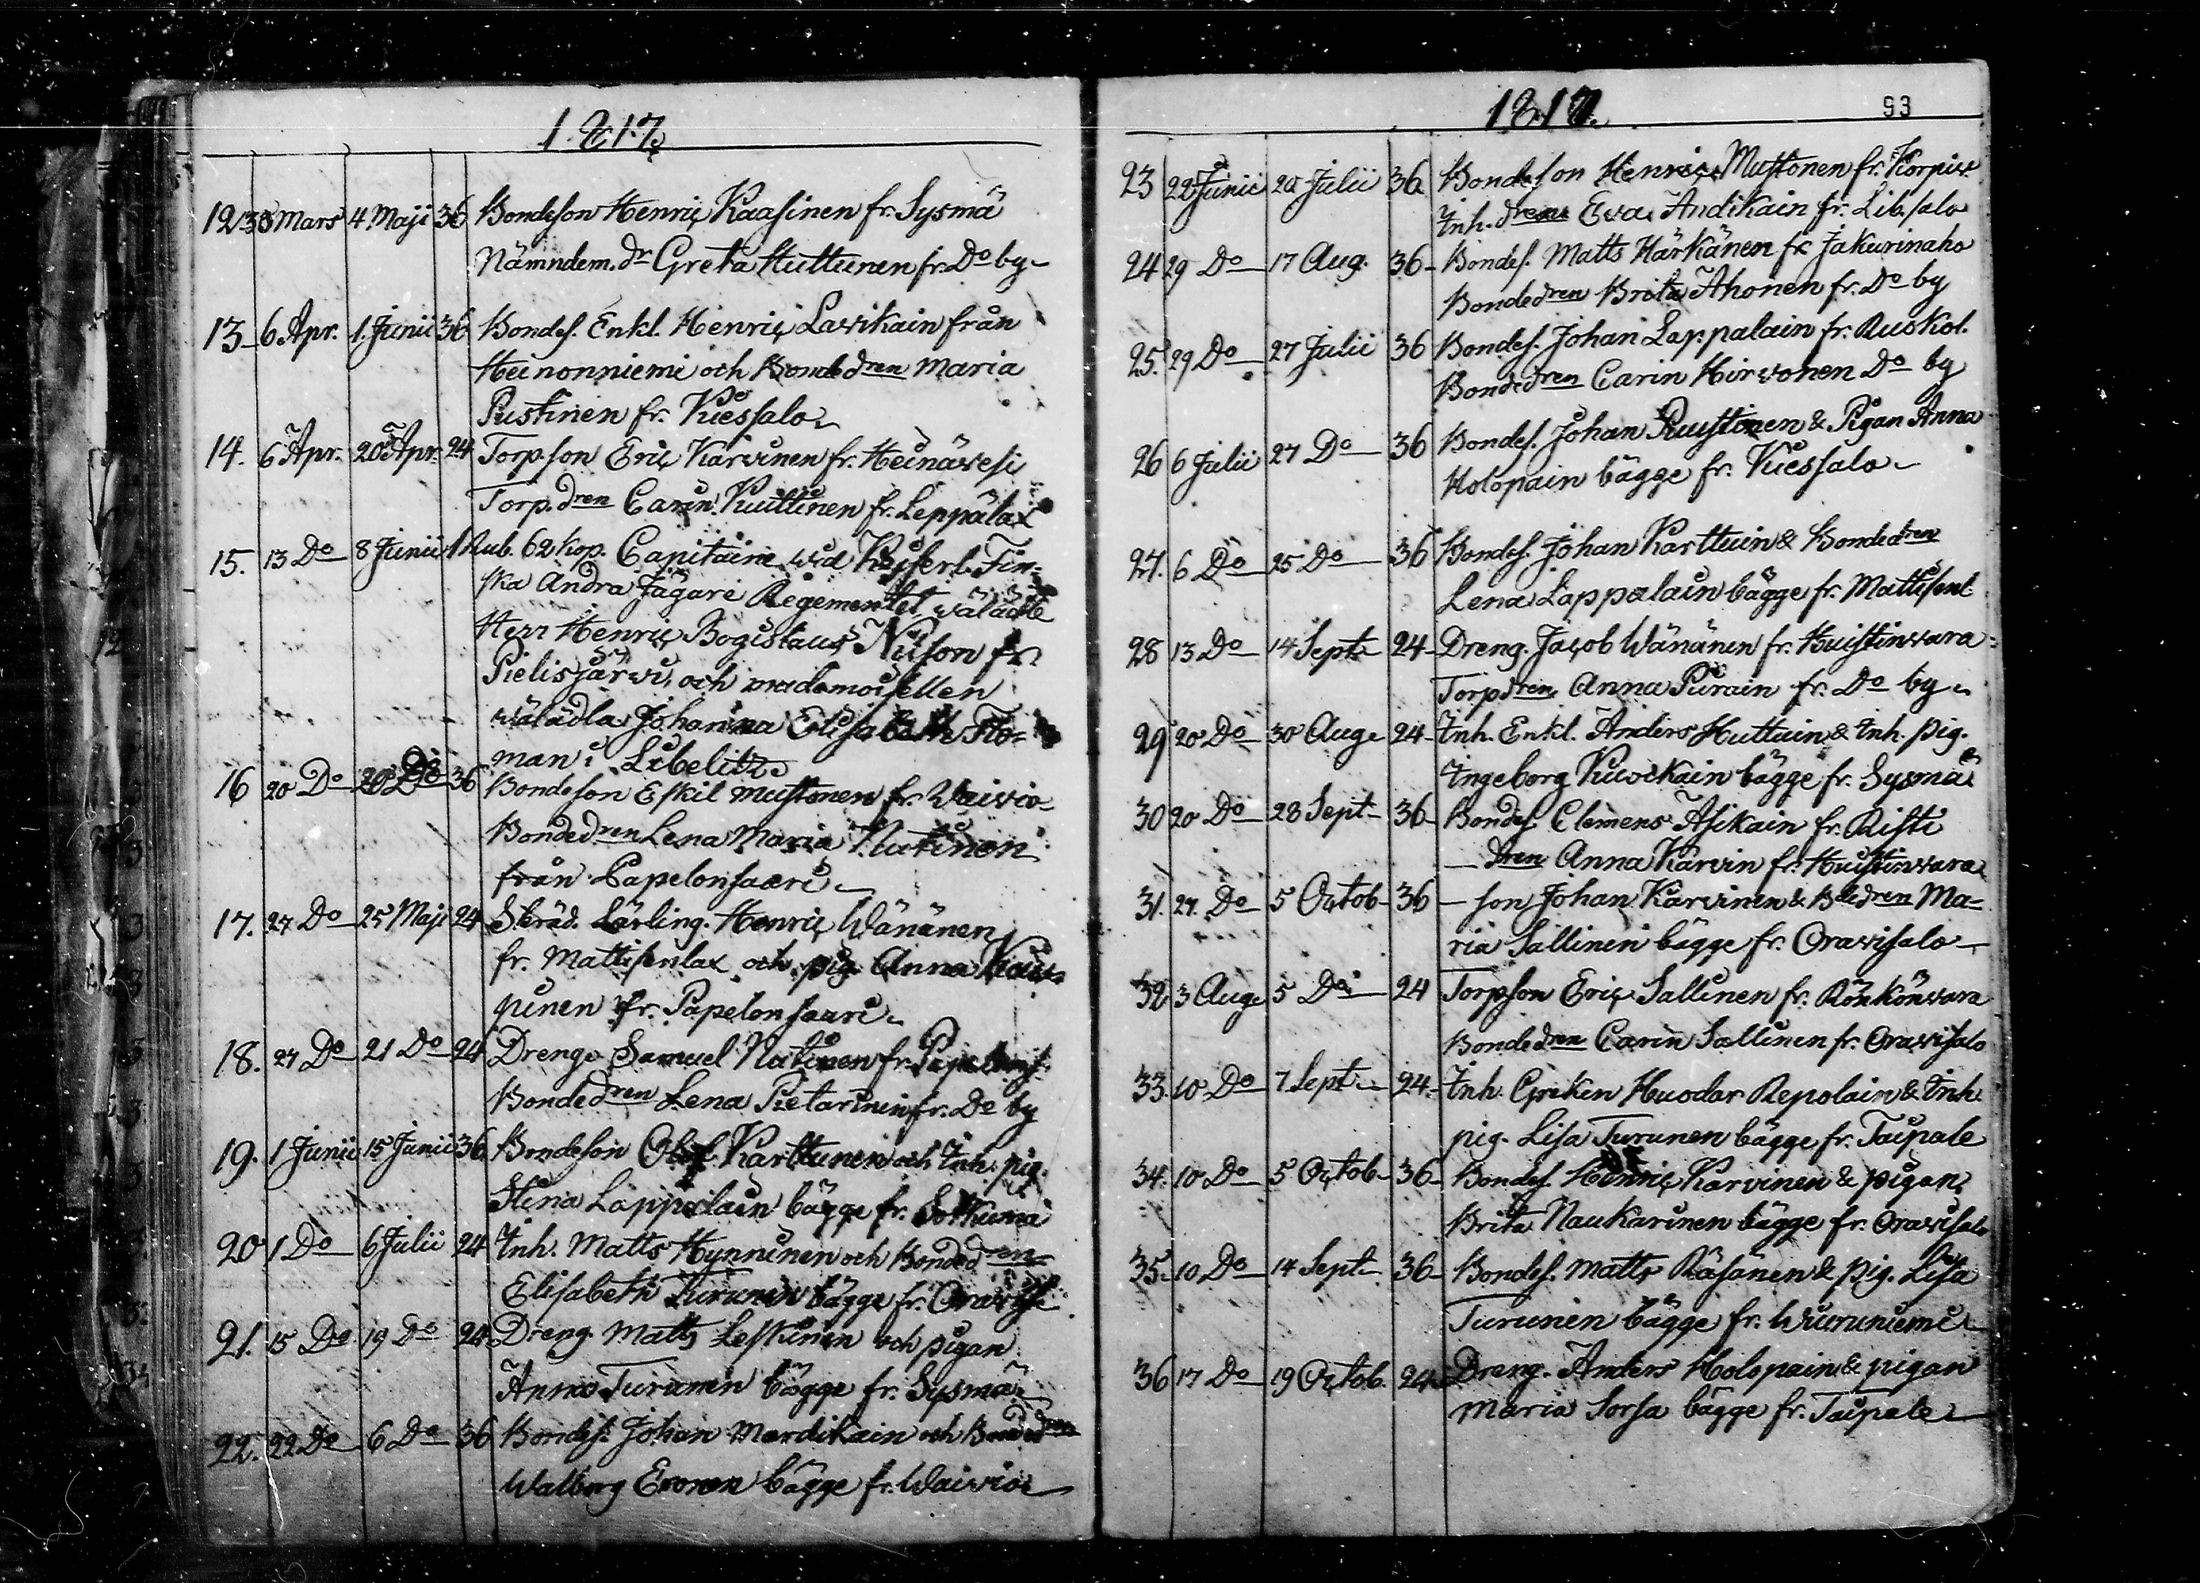 1817.
12. 30 Mars 4. Maji 36 Bondeson Henric Kaasinen fr. Sysmä
Nämndem. dr Greta Huttunen fr. Do by
13 6 Apr. 1. Junii 36 Bondes. Enkl. Henric Lavikain från
Heinonniemi och Bondedren Maria
Pustinen fr. Kiessalo
14. 6 Apr. 20 Apr. 24 Torpson Eric Karvinen fr. Heinävesi
Torp.dren Carin Kuittinen fr. Leppälax
15. 13 Do 8 Junii 1 Rub. 62 kop. Capitaine wid Kejserl. Fin-
ska Andra Jägare Regementet wälädle
Herr Henric Bogislaus fr.
Pielisjärwi, och mademoisellen
wälädla Johanna Elisabeth Flo-
man i Libelitz
16 20 Do 36 Bondeson Eskil Mustonen fr. Waivio
Bondedren Lena Maria Natinen
från Papelonsaari
17. 27 Do 25 Maji 24 Skräd. Lärling. Henric Wänänen
fr. Mattisenlax och pig. Anna Kaup-
pinen fr. Papelonsaari
18. 27 Do 21 Do 24 Dreng. Samuel Natinen fr. Papelons.
Bondedren Lena Pietarinen fr. Do by
19. 1 Junii 15 Junii 36 Bondeson Olof Karttunen och Inh. pig.
Stina Lappalain bägge fr. Sotkuma
20 1 Do 6 Julii 24 Inh. Matts Hynninen och Bondedren
Elisabeth Turunen bägge fr. Oravis.
21. 15 Do 19 Do 24 Dreng Matts Leskinen och pigan
Anna Turunen bägge fr. Sysmä
22. 22 Do 6 Do 36 Bondes. Johan Mardikain och Bondedren
Walborg Eronen bägge fr. Waivio
1817.
93
23 22 Junii 20 Julii 36 Bondeson Henric Mustonen fr. Korpiv
Inh. dren Eva Andikain fr. Lib.salo
24 29 Do 17 Aug. 36 Bondes. Matts Härkänen fr. Jakurinaho
Bondedren Brita Ahonen fr. Do by
25. 29 Do 27 Julii 36 Bondes. Johan Lappalain fr. Ruskol.
Bondedren Carin Hirvonen Do by
26 6 Julii 27 Do 36 Bondes. Johan Puustinen & Pigan Anna
Holopain bägge fr. Kiessalo
27. 6 Do 25 Do 36 Bondes. Johan Karttuin & Bondedren
Lena Lappalain bägge fr. Mattisenl.
28 13 Do 14 Sept. 24 Dreng. Jacob Wänänen fr. Huistinvara
Torpdren Anna Piirain fr. Do by
29 20 Do 30 Aug. 24 Inh. Enkl. Anders Huttuin & Inh. pig.
Ingeborg Kuivikain bägge fr. Sysmä
30 20 Do 28 Sept. 36 Bondes. Clemens Asikain fr. Risti
— dren Anna Karvin fr. Huistinvara
31. 27. Do 5 Octob. 36 — son Johan Karvinen & Bdedren Ma-
ria Sallinen bägge fr. Oravisalo
32 3 Aug. 5 Do 24 Torpson Eric Sallinen fr. Rönkönvara
Bondedren Carin Sallinen fr. Oravisalo
33. 10 Do 7 Sept. 24 Inh. Greken Huodar Repolain & Inh.
pig. Lisa Turunen bägge fr. Taipale
34. 10 Do 5 Octob. 36 Bondes. Henric Karvinen & pigan
Brita Naukarinen bägge fr. Oravisalo
35. 10 Do 14 Sept. 36 Bondes. Matts Räsänen & pig. Lisa
Turunen bägge fr. Wiuruniemi
36 17 Do 19 Octob. 24 Dreng. Anders Holopain & pigan
Maria Sorsa bägge fr. Taipale